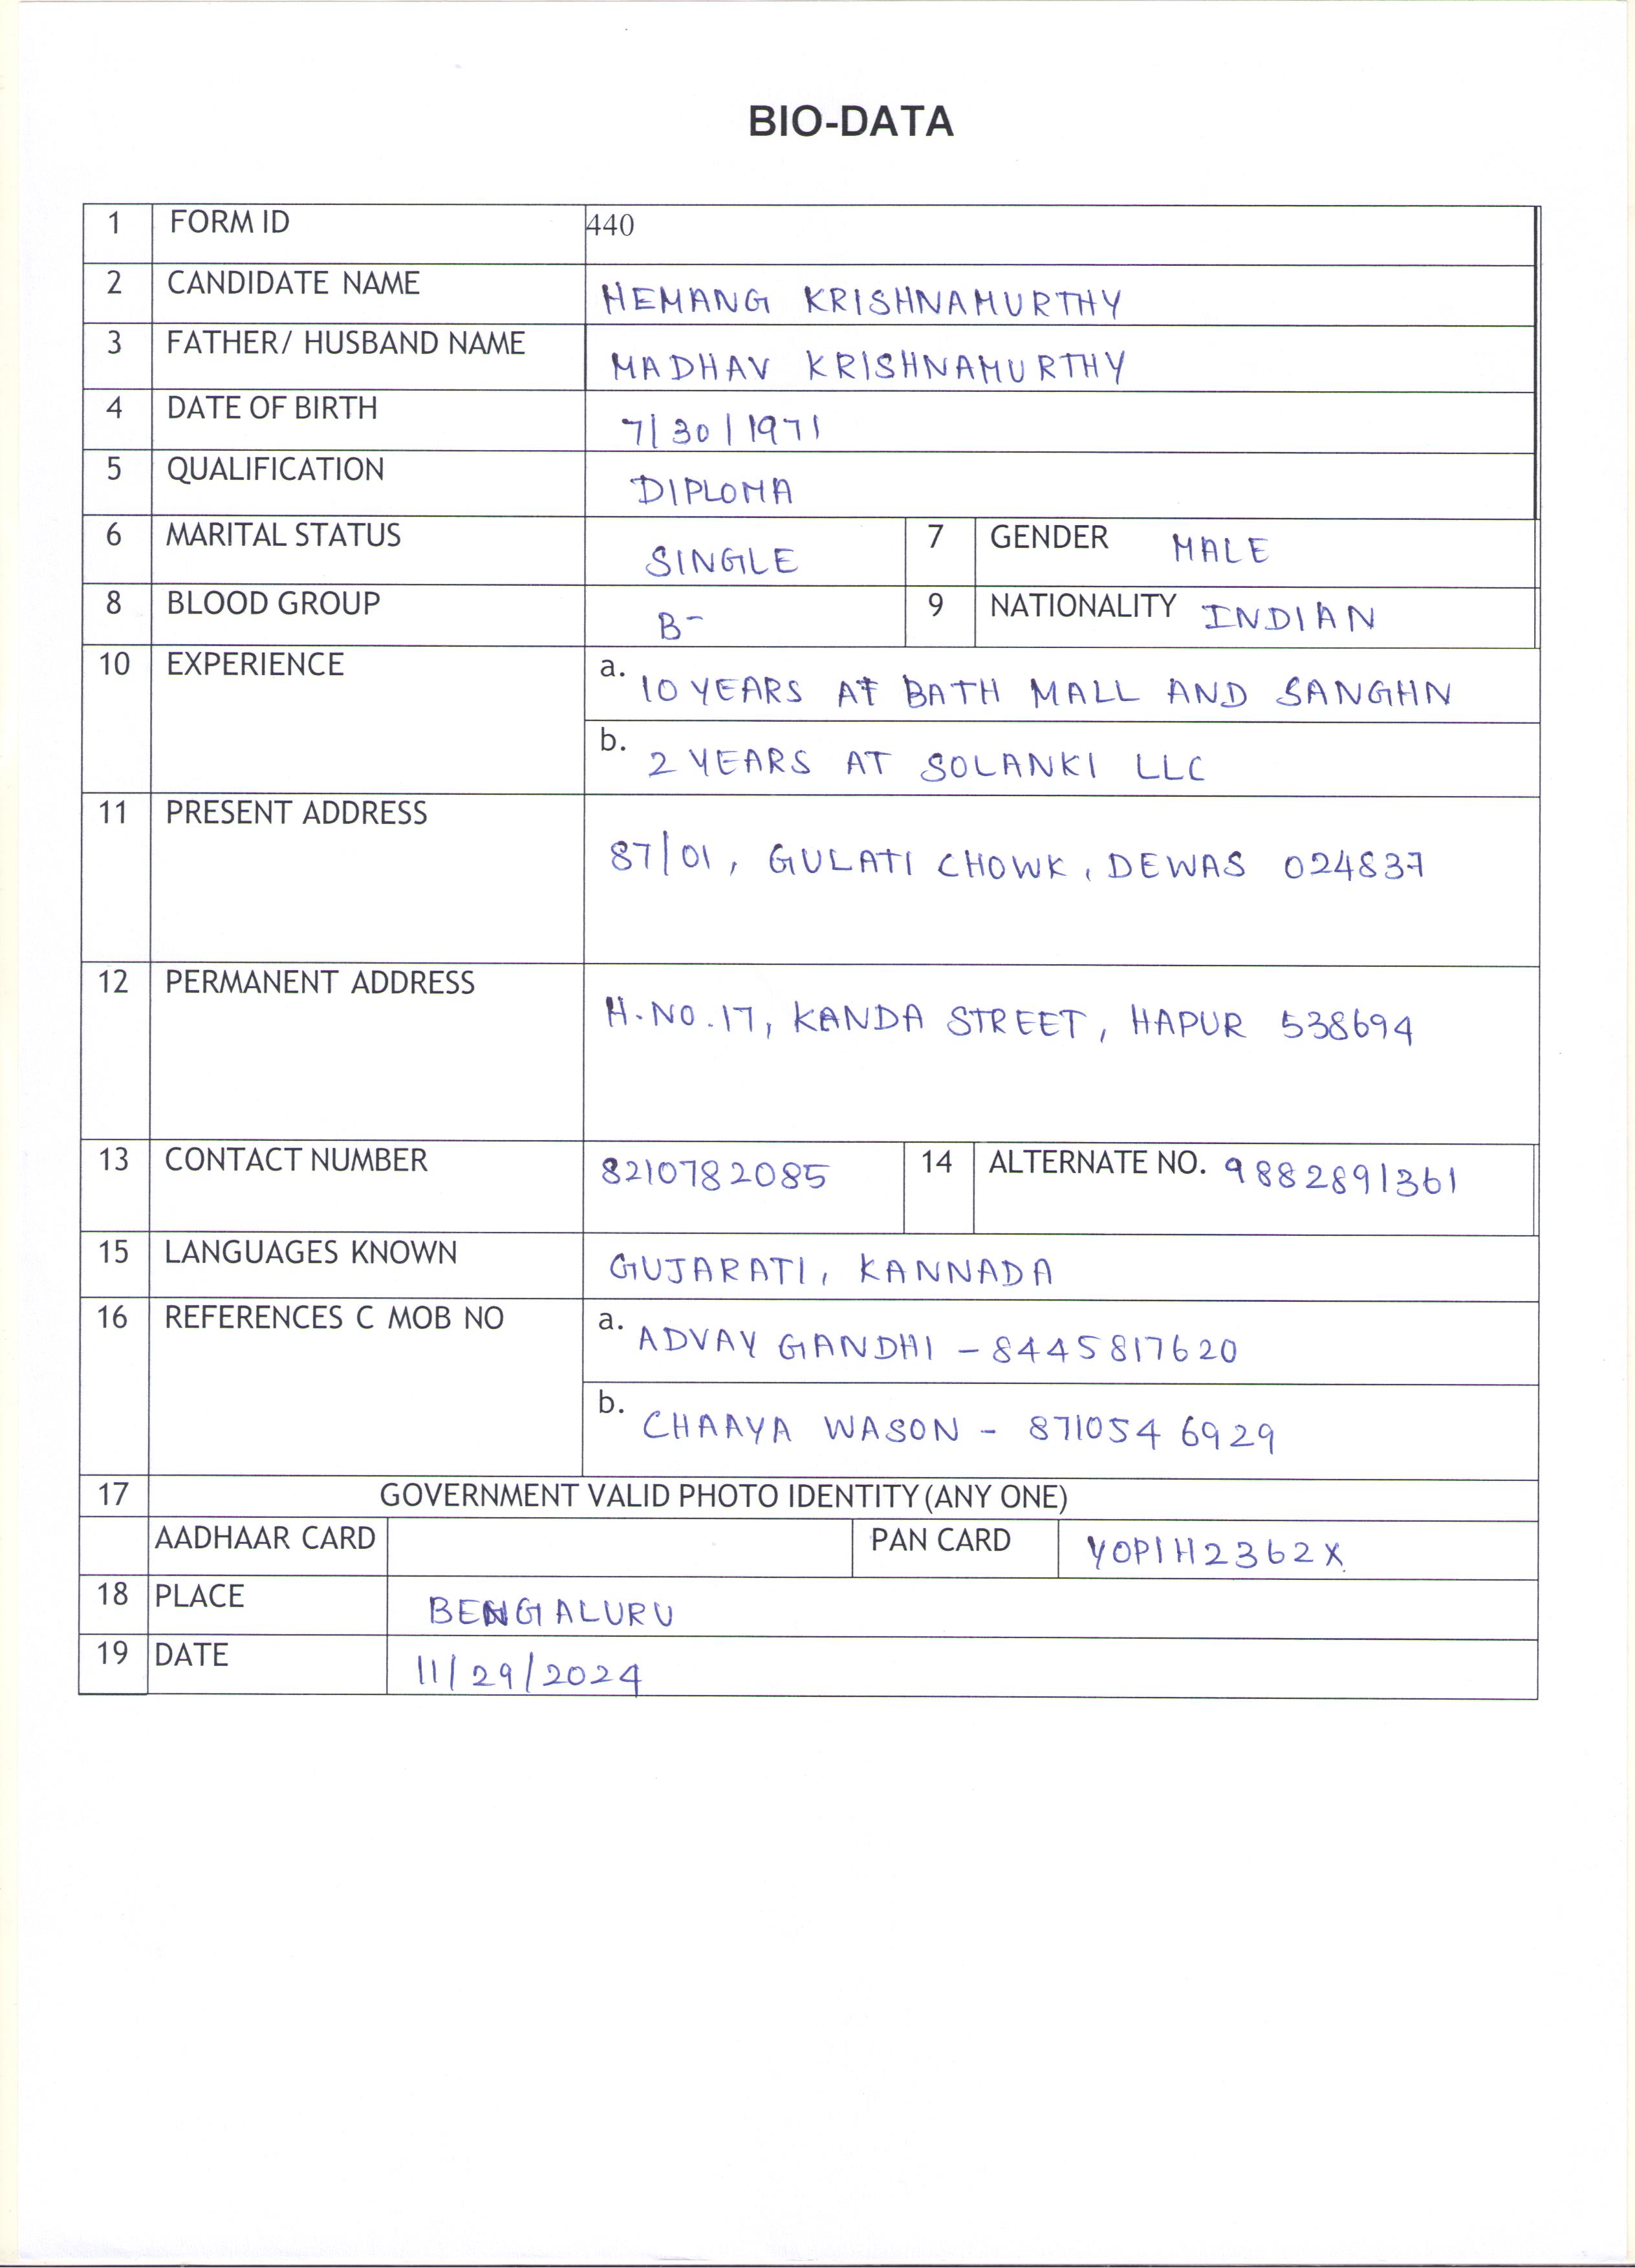 BIO-DATA
1 FORM ID 440
2 CANDIDATE NAME HEMANG KRISHNAMURTHY
3 FATHER/ HUSBAND NAME MADHAV KRISHNAMURTHY
4 DATE OF BIRTH 7/30/1971
5 QUALIFICATION DIPLOMA
6 MARITAL STATUS SINGLE 7 GENDER MALE
8 BLOOD GROUP B- 9 NATIONALITY INDIAN
10 EXPERIENCE a. 10 YEARS AT BATH MALL AND SANGHN
b. 2 YEARS AT SOLANKI LLC
11 PRESENT ADDRESS 87/01, GULATI CHOWK, DEWAS 024837
12 PERMANENT ADDRESS H.NO.17, KANDA STREET, HAPUR 538694
13 CONTACT NUMBER 8210782085 14 ALTERNATE NO. 9882891361
15 LANGUAGES KNOWN GUJARATI, KANNADA
16 REFERENCES C MOB NO a. ADVAY GANDHI - 8445817620
b. CHAAYA WASON - 8710546929
17 GOVERNMENT VALID PHOTO IDENTITY (ANY ONE)
AADHAAR CARD PAN CARD YOPIH2362X
18 PLACE BENGALURU
19 DATE 11/29/2024